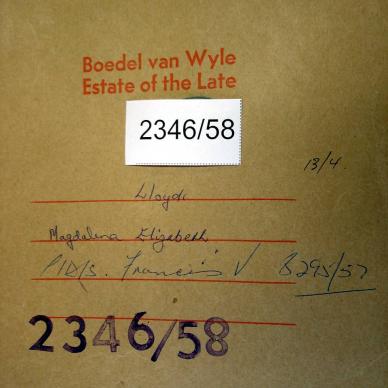 Boedel van Wyle
Estate of the Late
2346/58
13/4.
Lloyd
Magdalena Elizabeth
P/D/S. Francis V B295/57
2346/58